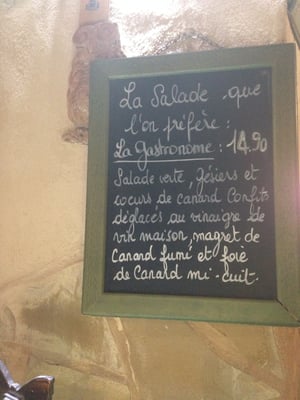 La Salade que
l'on préfère :
La Gastronome : 14.90
Salade verte, Gésiers et
coeurs de canard Confits
déglacés au vinaigre de
vin maison, magret de
Canard fumé et foie
de Canard mi-cuit.